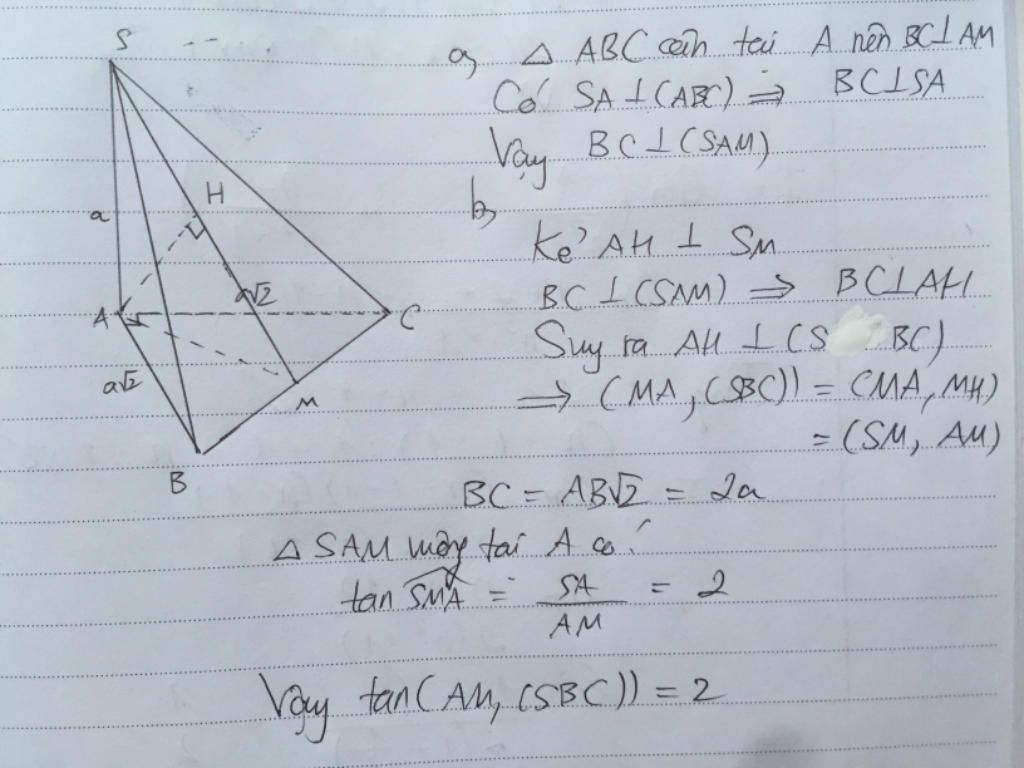 S
a, △ ABC cân tại A nên BC⊥AM
Có SA⊥(ABC) ⇒ BC⊥SA
Vậy BC⊥(SAM)
H
a
b,
Kẻ AH ⊥ SM
BC⊥(SAM) ⇒ BC⊥AH
a√2
A
C
Suy ra AH ⊥ (SBC)
a√2
M
⇒ (MA, (SBC)) = (MA, MH)
= (SM, AM)
B
BC = AB√2 = 2a
△ SAM vuông tại A có:
tan SMA = SA/AM = 2
Vậy tan(AM, (SBC)) = 2